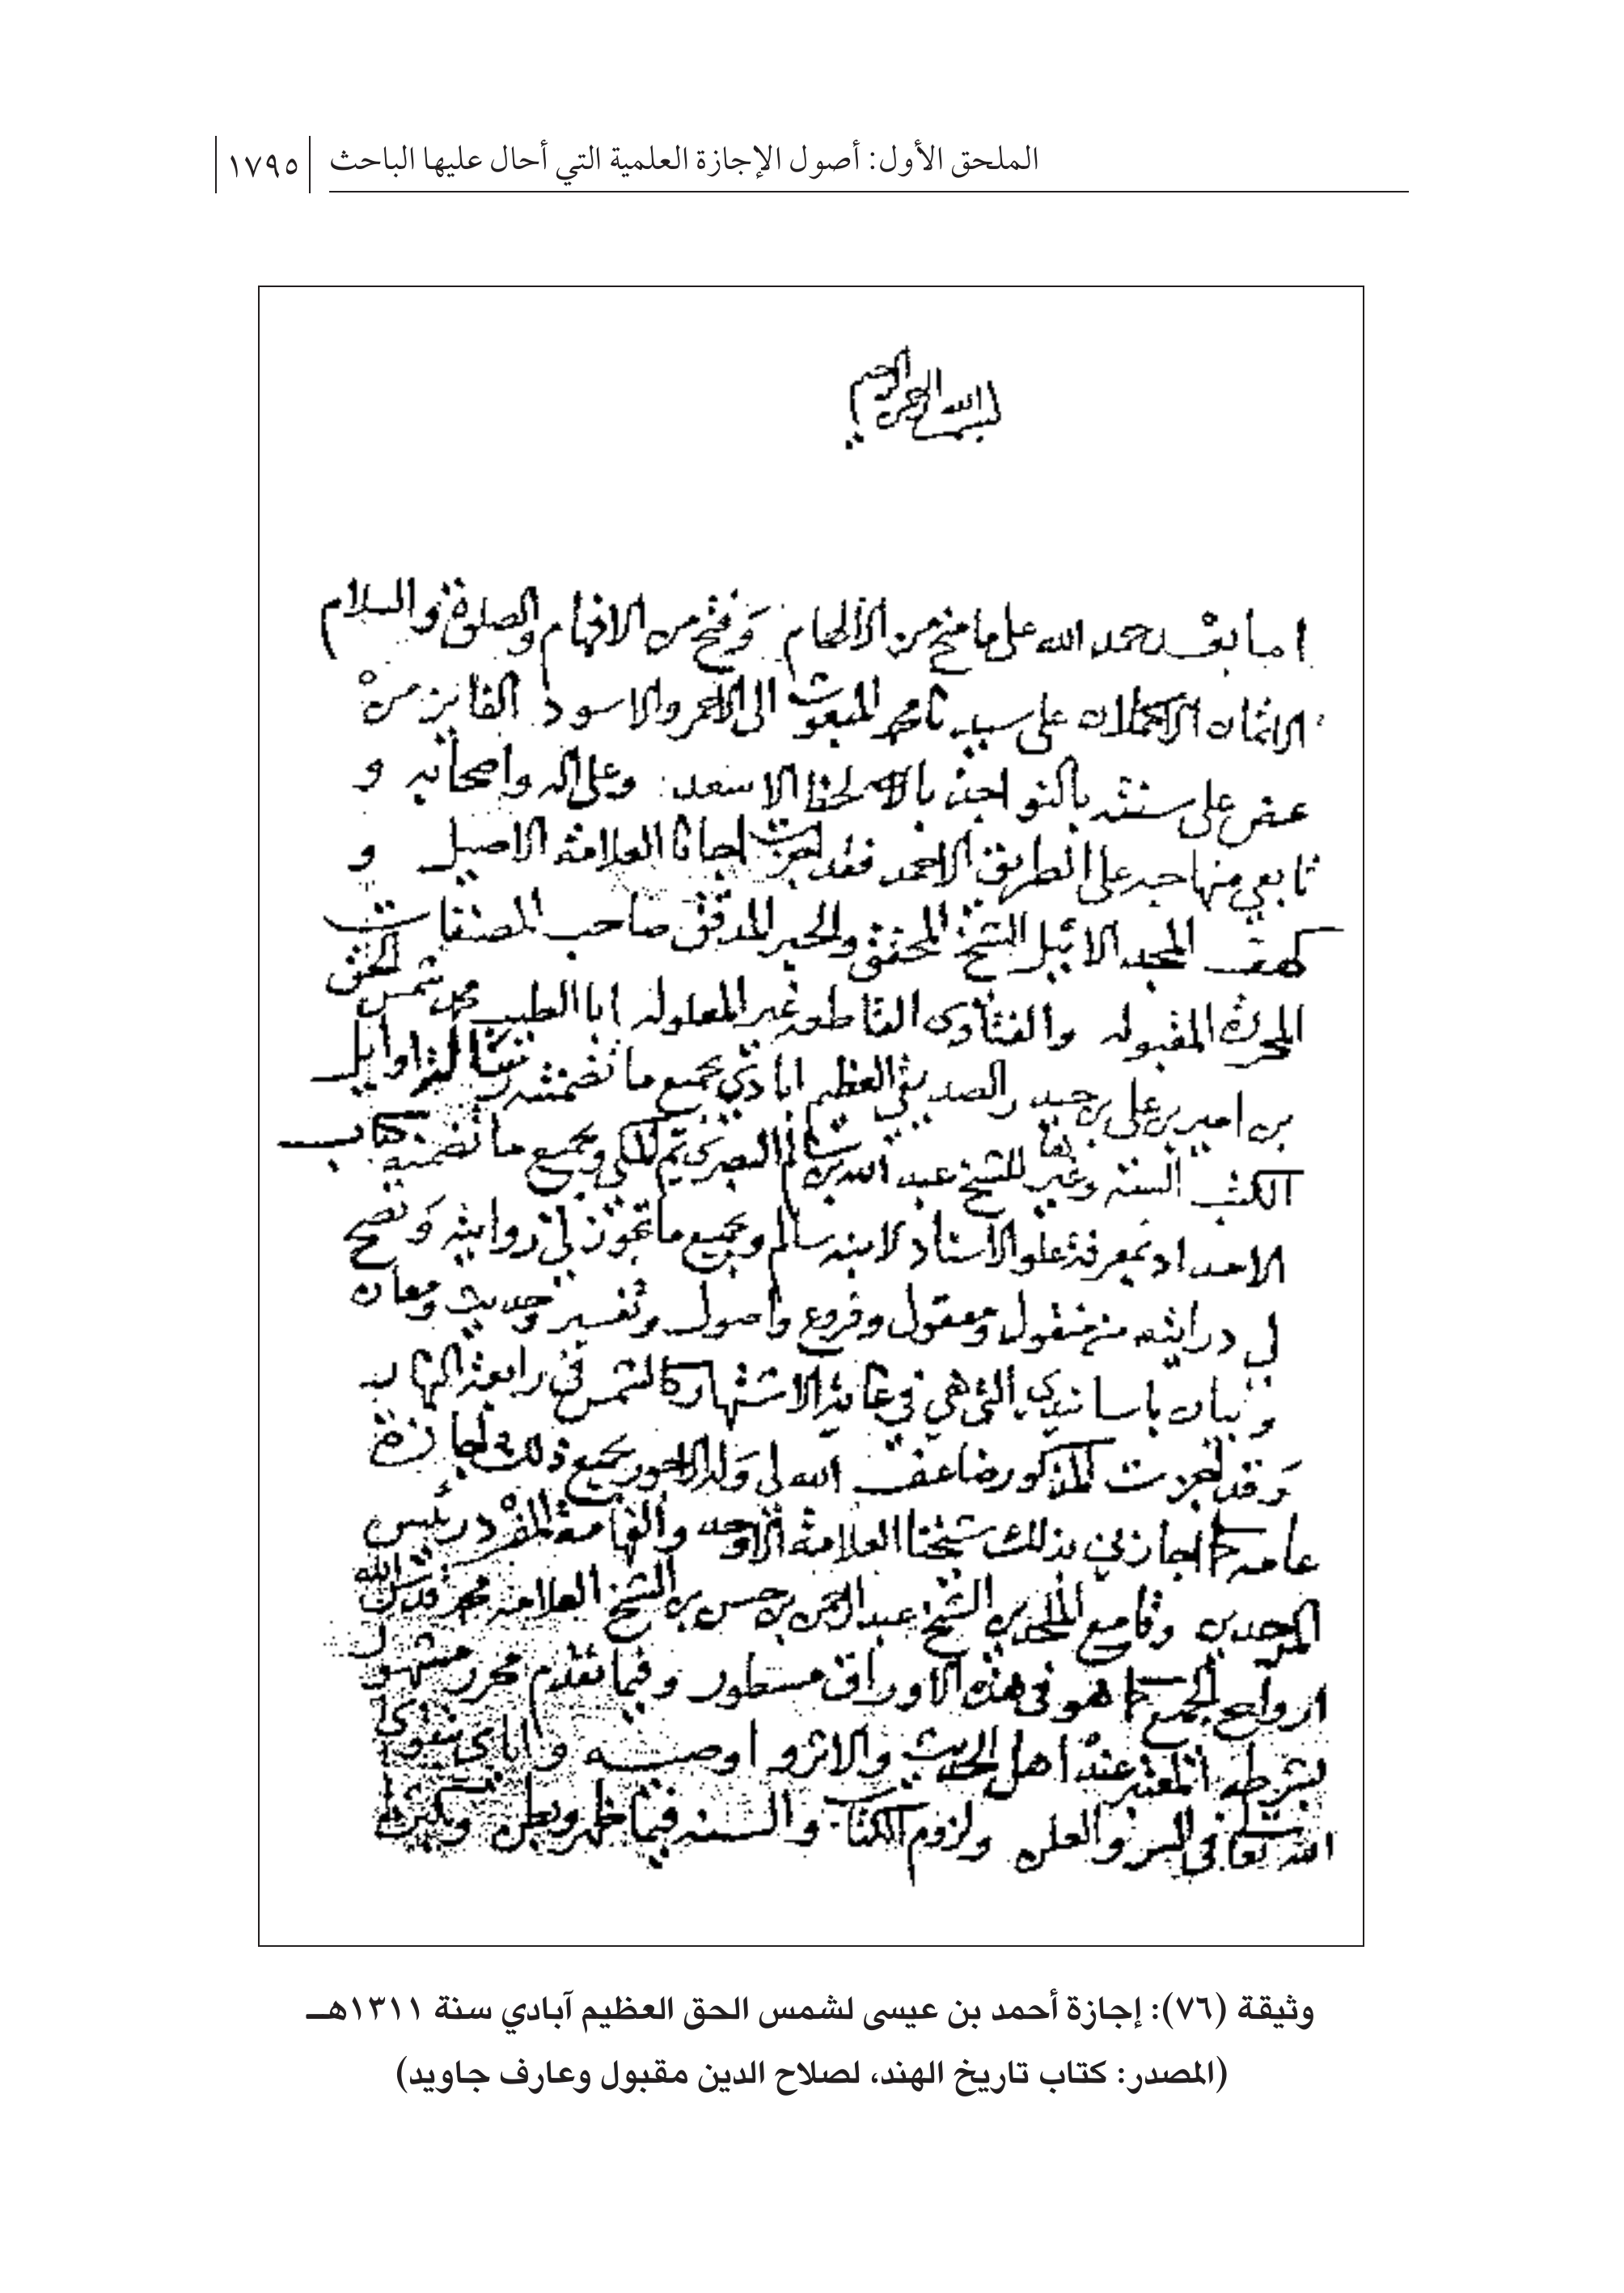 الملحق الأول: أصول الإجازة العلمية التي أحال عليها الباحث ١٧٩٥
بسم الله الرحمن الرحيم
اما بعد حمد الله على ما منح من الالهام وفتح من الافهام والصلوة والسلام
الاتمان الاكملان على سيدنا محمد المبعوث الى الاحمر والاسود الفايز من
عض على سنته بالنواجذ بالحظ الاسعد وعلى اله واصحابه و
تابعي منهاجه على الطريق الاحمد فقد اجزت اخانا العلامة الاصيل و
كهف المجد الاثيل الشيخ المحقق والحبر المدقق صاحب المصنفات
المحررة المقبوله والفتاوى غير المعلوله ابا الطيب محمد شمس الحق
بن امير بن علي بن حيدر الصديقي العظيم ابادي بجميع ما تضمنته اوايل
الكتب السنة وغيرها للشيخ عبد الله بن سالم البصري ثم المكي وبجميع ما تضمنه كتاب
الامداد بمعرفة علو الاسناد لابنه سالم وبجميع ما تجوز لي روايته وتصح
لي درايته من منقول ومعقول وفروع واصول وتفسير وحديث ومعان
وبيان باسانيدي التي هي في غاية الاشتهار كالشمس في رابعة النهار
وقد اجزت المذكور ضاعف الله لي وله الاجور بجميع ذلك اجازة
عامه كما اجازني بذلك شيخنا العلامة الاوحد والفهامة المفرد رئيس
الموحدين وقامع الملحدين الشيخ عبد الرحمن بن حسن بن الشيخ العلامه محمد قدس الله
ارواح الجميع كما هو في هذه الاوراق مسطور وفيما تقدم محرر مشهور
بشرطه المعتبر عند اهل الحديث والاثر واوصيه واياي بتقوى
الله تعالى في السر والعلن ولزوم الكتاب والسنه فيما ظهر وبطن
وثيقة (٧٦): إجازة أحمد بن عيسى لشمس الحق العظيم آبادي سنة ١٣١١هـ
(المصدر: كتاب تاريخ الهند، لصلاح الدين مقبول وعارف جاويد)